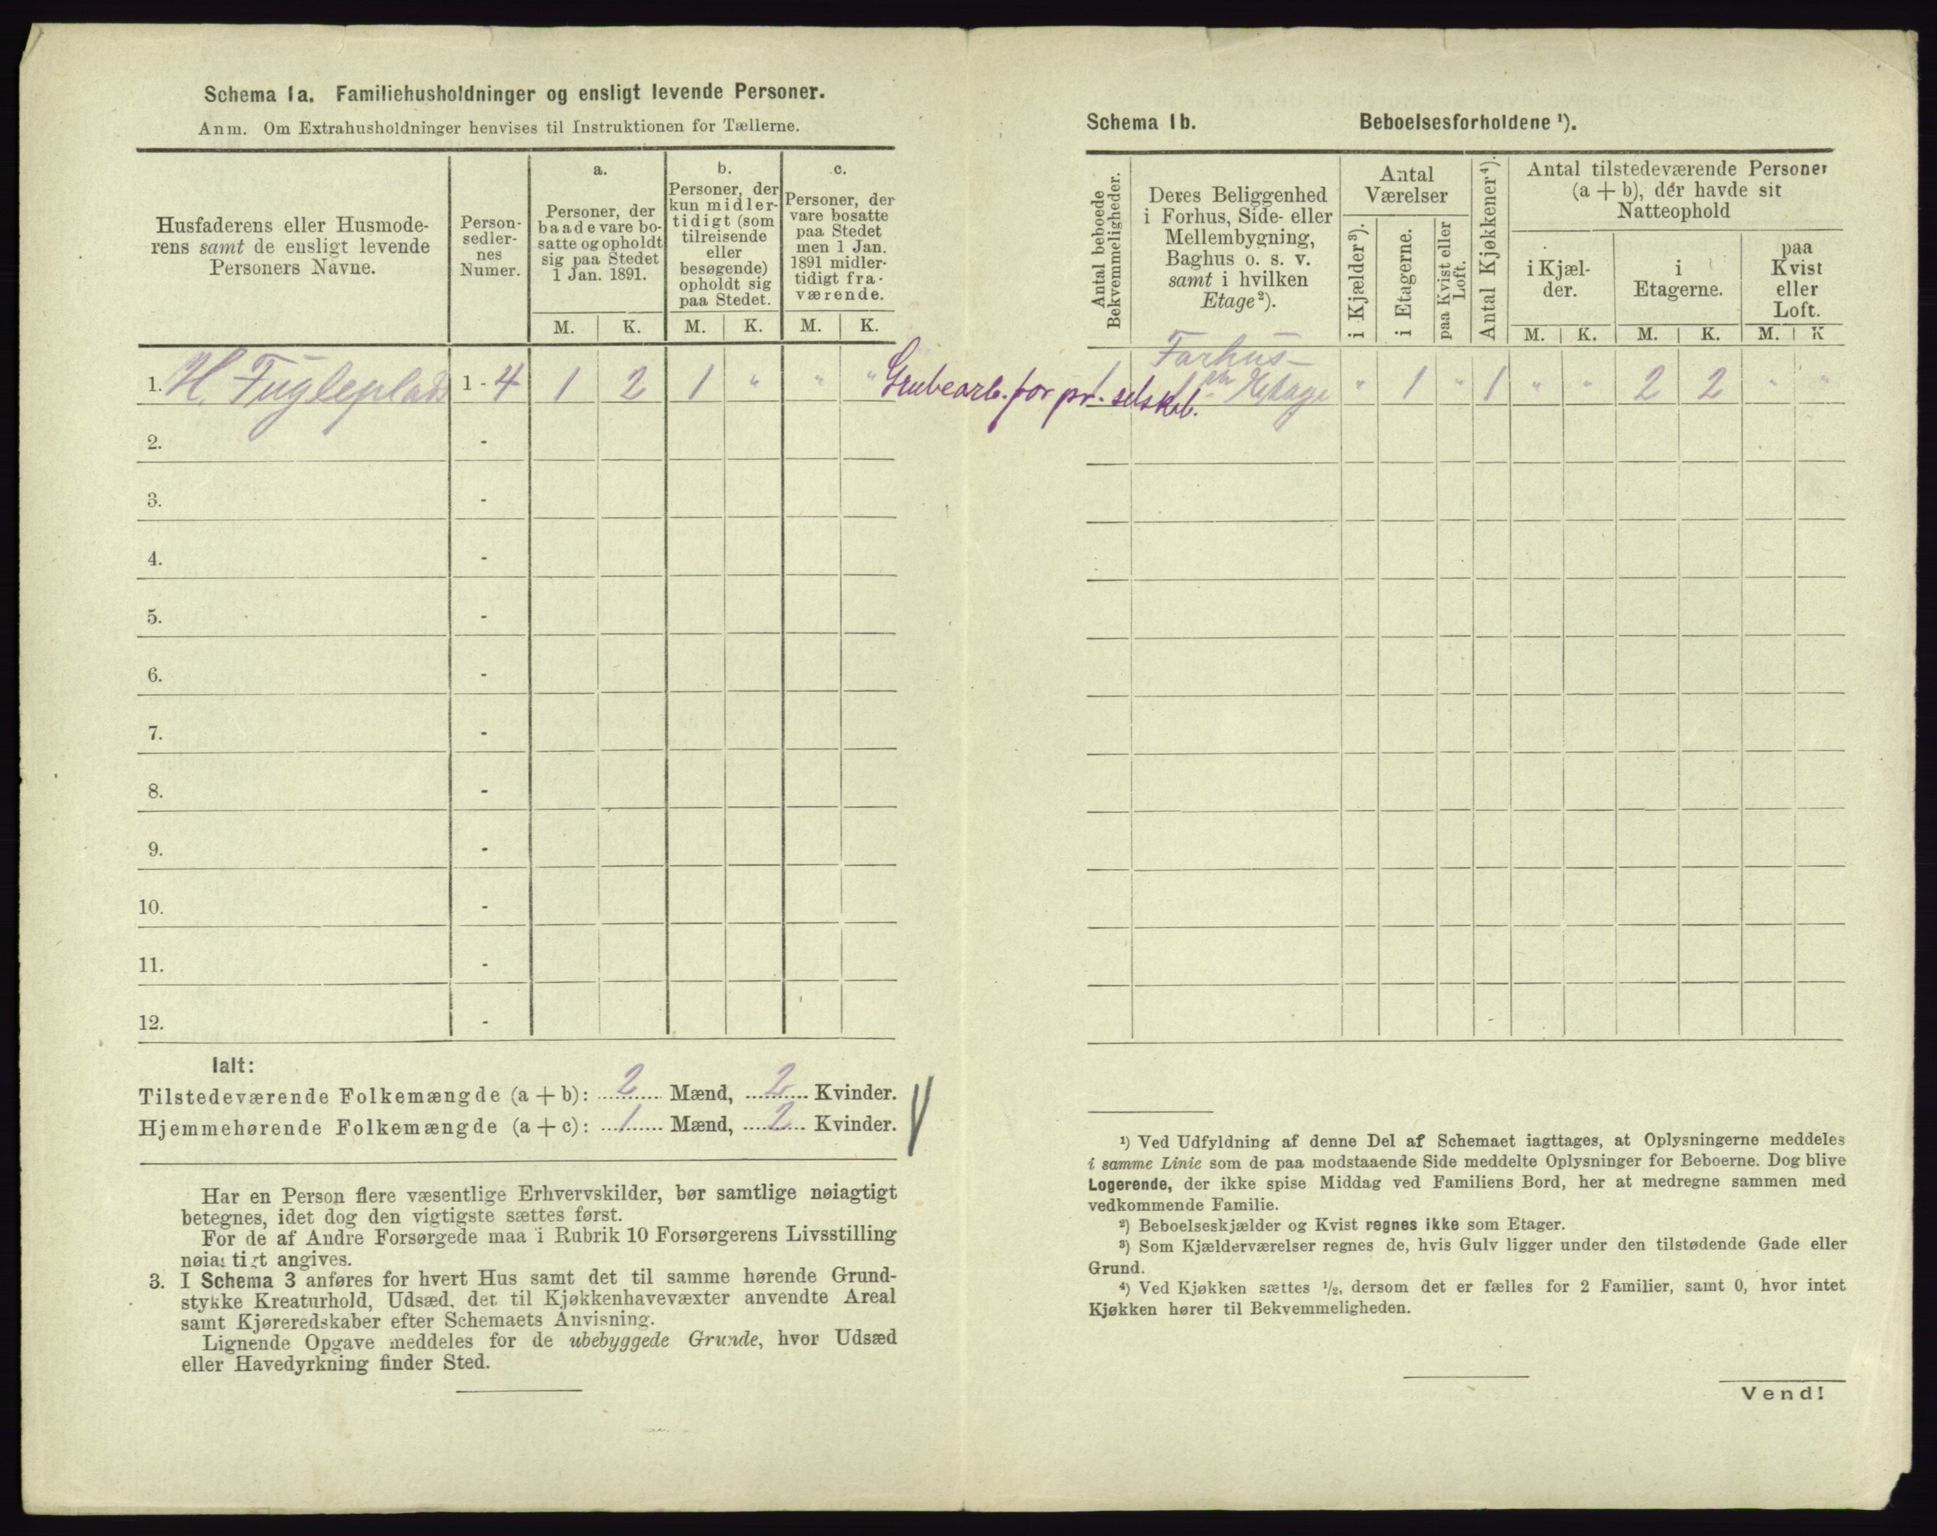 Schema 1a. Familiehusholdninger og ensligt levende Personer.
Anm. Om Extrahusholdninger henvises til Instruktionen for Tællerne.
Husfaderens eller Husmode-
rens samt de ensligt levende
Personers Navne.
Person-
sedler-
nes
Numer.
a.
Personer, der
baade vare bo-
satte og opholdt
sig paa Stedet
1 Jan. 1891.
b.
Personer, der
kun midler-
tidigt (som
tilreisende
eller
besøgende)
opholdt sig
paa Stedet.
c.
Personer, der
vare bosatte
paa Stedet
men 1 Jan.
1891 midler-
tidigt fra-
værende.
M. K. M. K. M. K.
1. H. Fugleplads 1 - 4 1 2 1 " " "
Grubearb. for pr. selskab.
2. -
3. -
4. -
5. -
6. -
7. -
8. -
9. -
10. -
11. -
12. -
Ialt:
Tilstedeværende Folkemængde (a + b): 2 Mænd, 2 Kvinder.
Hjemmehørende Folkemængde (a + c): 1 Mænd, 2 Kvinder.
Har en Person flere væsentlige Erhvervskilder, bør samtlige nøiagtigt
betegnes, idet dog den vigtigste sættes først.
For de af Andre Forsørgede maa i Rubrik 10 Forsørgerens Livsstilling
nøiagtigt angives.
3. I Schema 3 anføres for hvert Hus samt det til samme hørende Grund-
stykke Kreaturhold, Udsæd, det til Kjøkkenhavevæxter anvendte Areal
samt Kjøreredskaber efter Schemaets Anvisning.
Lignende Opgave meddeles for de ubebyggede Grunde, hvor Udsæd
eller Havedyrkning finder Sted.
Schema 1b. Beboelsesforholdene ¹).
Antal beboede
Bekvemmeligheder.
Deres Beliggenhed
i Forhus, Side- eller
Mellembygning,
Baghus o. s. v.
samt i hvilken
Etage ²).
Antal
Værelser
i Kjælder ³).
i Etagerne.
paa Kvist eller
Loft.
Antal Kjøkkener ⁴).
Antal tilstedeværende Personer
(a + b), der havde sit
Natteophold
i Kjæl-
der.
i
Etagerne.
paa
Kvist
eller
Loft.
M. K. M. K. M. K
Forhus-
1 Etage " 1 " 1 " " 2 2 " "
¹) Ved Udfyldning af denne Del af Schemaet iagttages, at Oplysningerne meddeles
i samme Linie som de paa modstaaende Side meddelte Oplysninger for Beboerne. Dog blive
Logerende, der ikke spise Middag ved Familiens Bord, her at medregne sammen med
vedkommende Familie.
²) Beboelseskjælder og Kvist regnes ikke som Etager.
³) Som Kjælderværelser regnes de, hvis Gulv ligger under den tilstødende Gade eller
Grund.
⁴) Ved Kjøkken sættes ¹/₂, dersom det er fælles for 2 Familier, samt 0, hvor intet
Kjøkken hører til Bekvemmeligheden.
Vend!